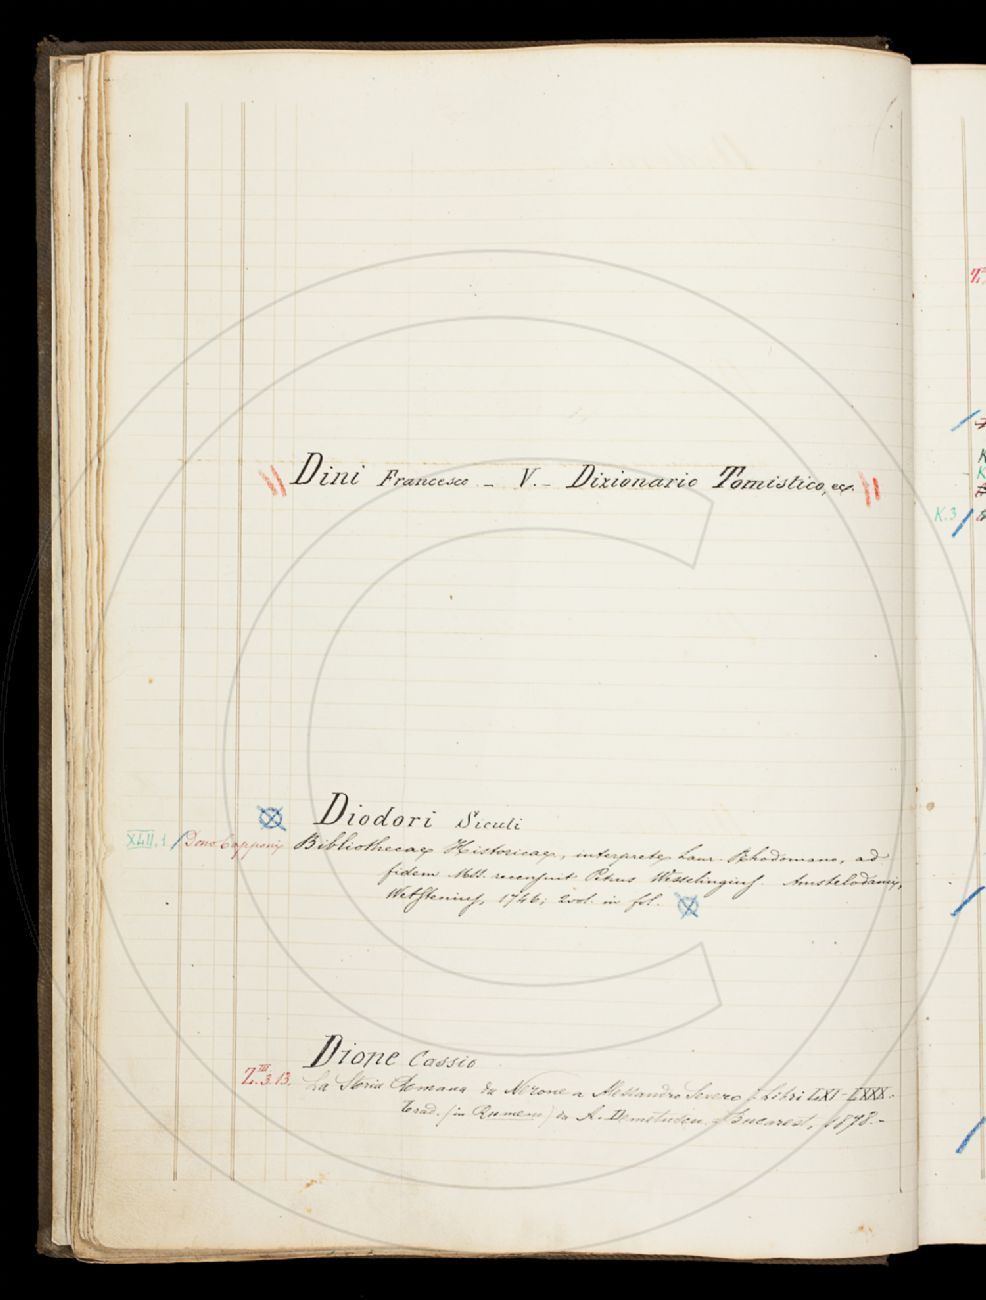 Dini Francesco - V. - Dizionario Tomistico, ecc.
Diodori Siculi
XLII.1 Dono Capponi Bibliothecae Historicae, interprete Laur. Rhodomano, ad
fidem Mss. recensuit Petrus Wesselingius. Amstelodami,
Wetstenius, 1746; 2 vol. in fol.
Dione Cassio
Z.III.3.13. La Storia Romana da Nerone a Alessandro Severo. Libri LXI-LXXX.
Trad. (in Rumeno) da A. Demetriescu. Bucarest, 1878.-
K.3